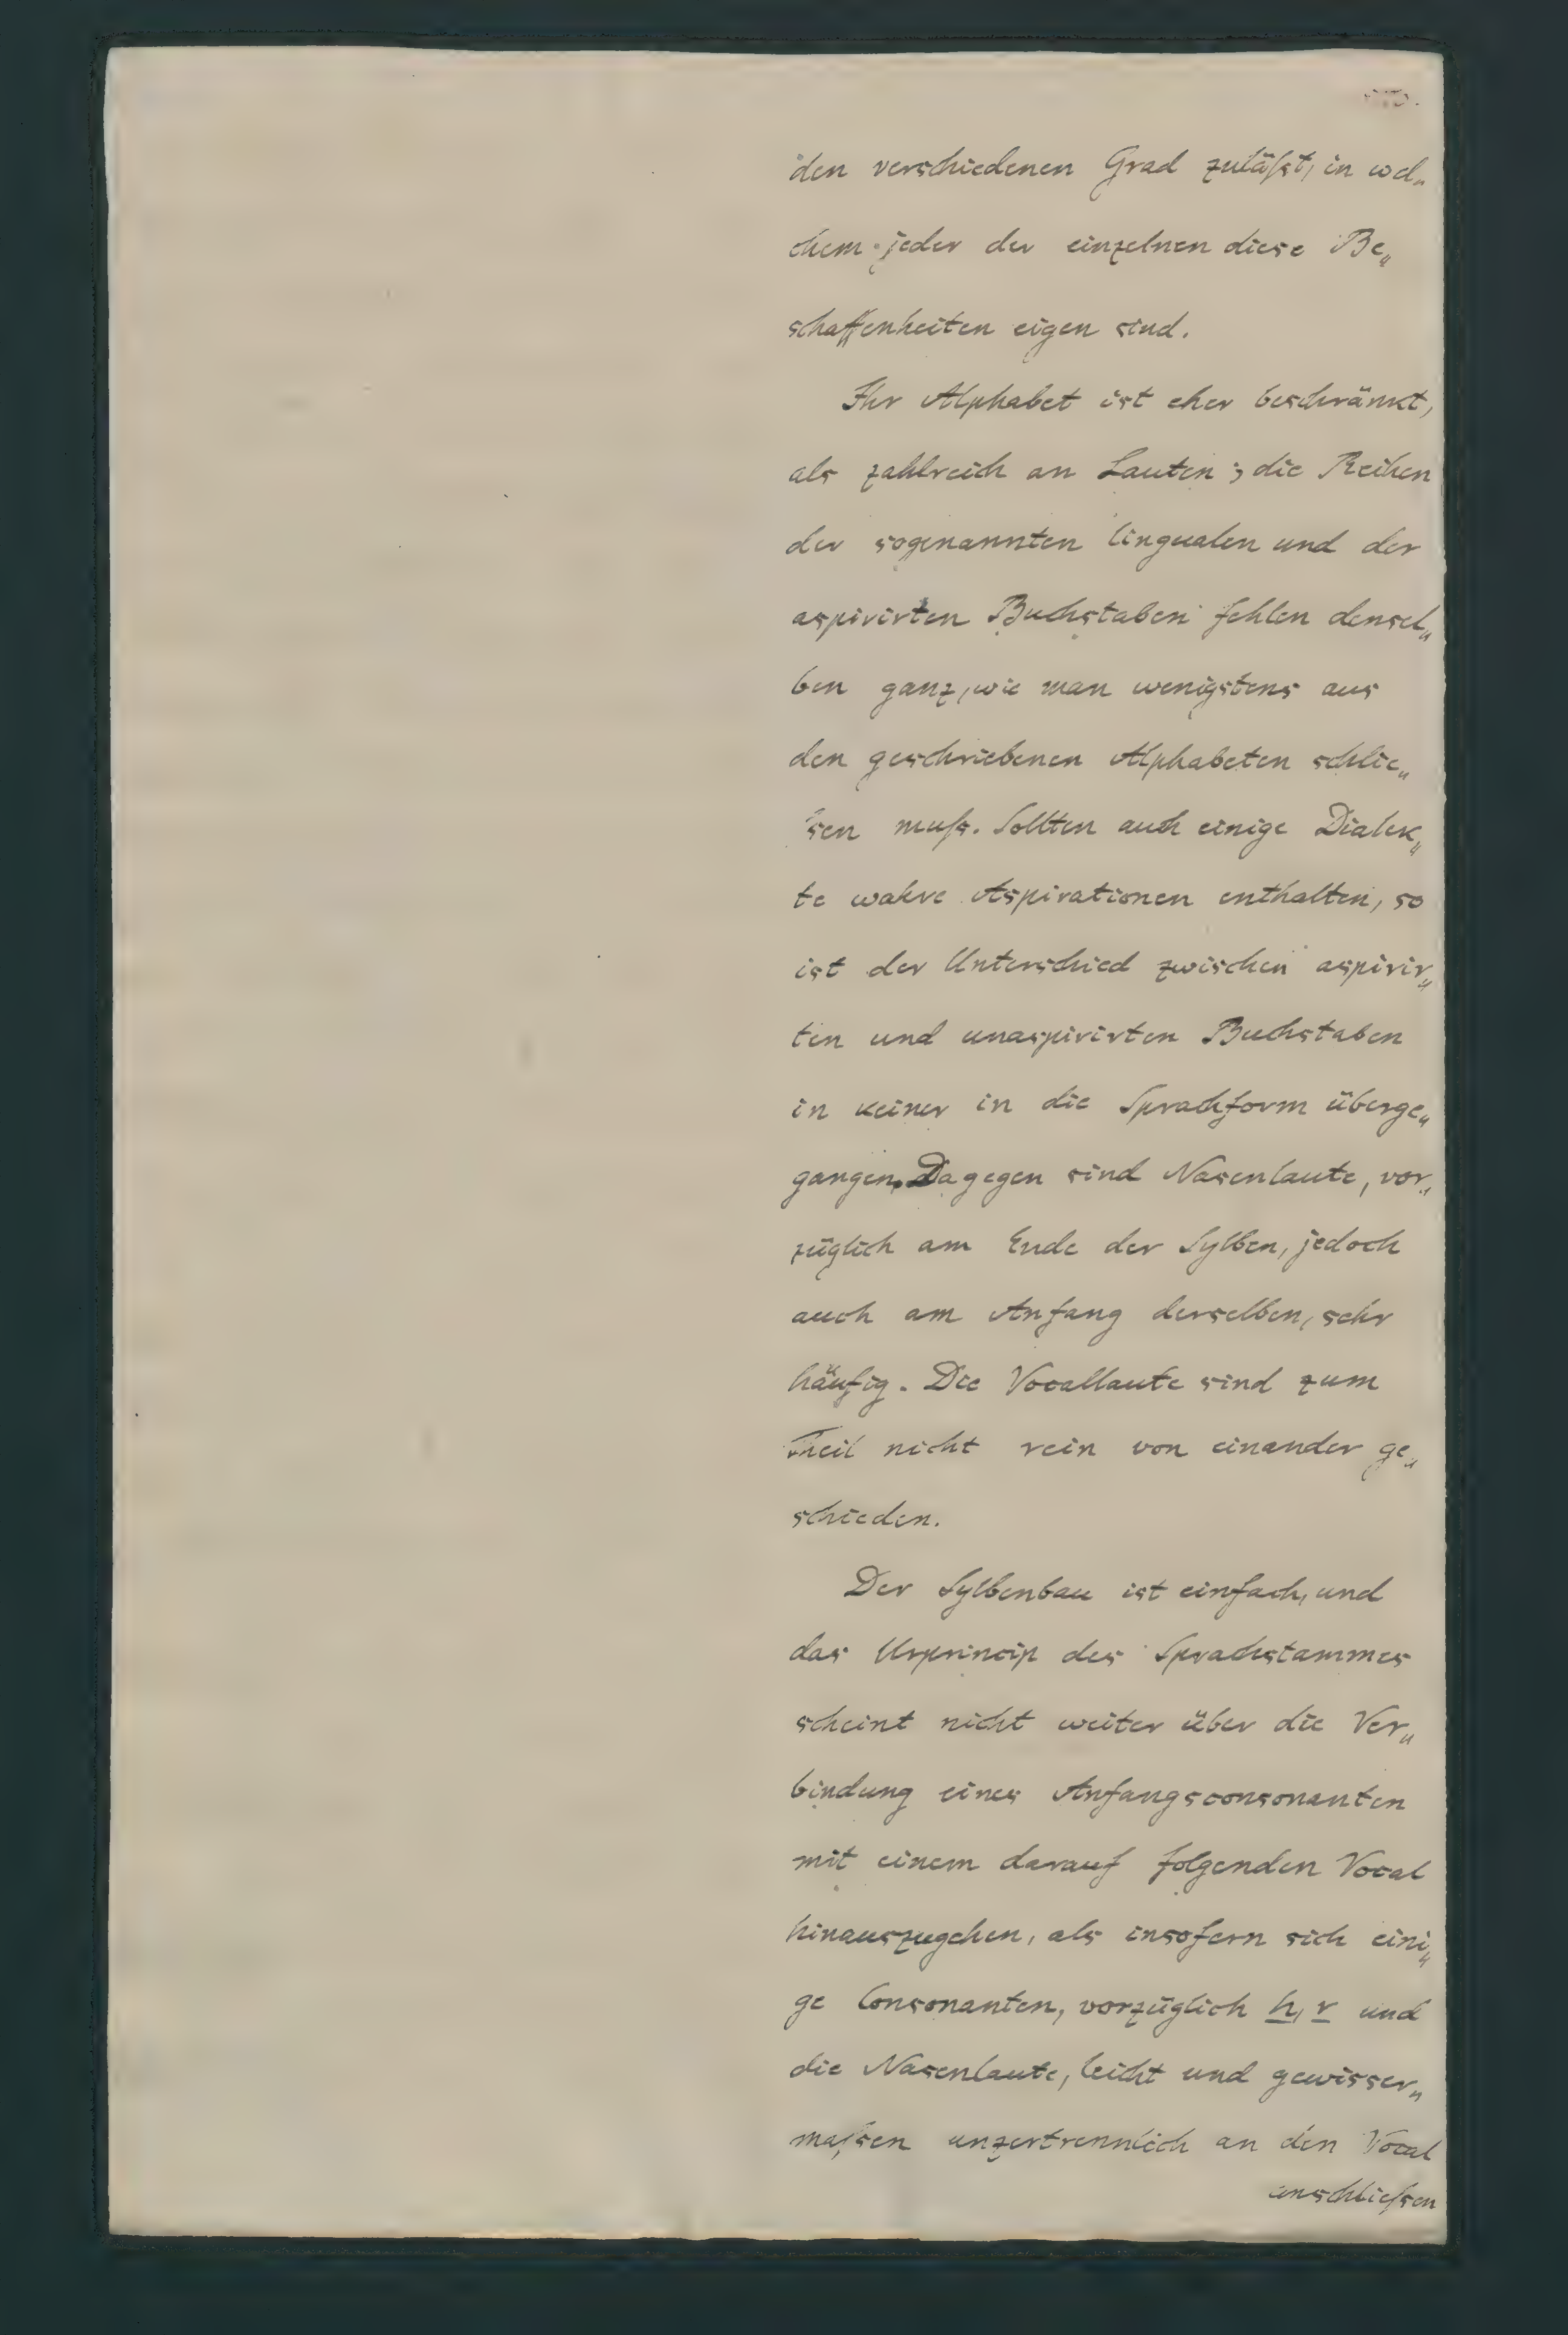 den verschiedenen Grad zuläſst, in wel„
chem jeder der einzelnen diese Be„
schaffenheiten eigen sind.
Ihr Alphabet ist eher beschränkt,
als zahlreich an Lauten; die Reihen
der sogenannten lingualen und der
aspirirten Buchstaben fehlen densel„
ben ganz, wie man wenigstens aus
den geschriebenen Alphabeten schlie„
sen muſs. Sollten auch einige Dialek„
te wahre Aspirationen enthalten, so
ist der Unterschied zwischen aspirir„
ten und unaspirirten Buchstaben
in keiner in die Sprachform überge„
gangen. Dagegen sind Nasenlaute, vor„
züglich am Ende der Sylben, jedoch
auch am Anfang derselben, sehr
häufig. Die Vocallaute sind zum
Theil nicht rein von einander ge„
schieden.
Der Sylbenbau ist einfach, und
das Urprincip des Sprachstammes
scheint nicht weiter über die Ver„
bindung eines Anfangsconsonanten
mit einem darauf folgenden Vocal
hinauszugehen, als insofern sich eini„
ge Consonanten, vorzüglich h, r und
die Nasenlaute, leicht und gewisser„
maſsen unzertrennlich an den Vocal
anschlieſsen